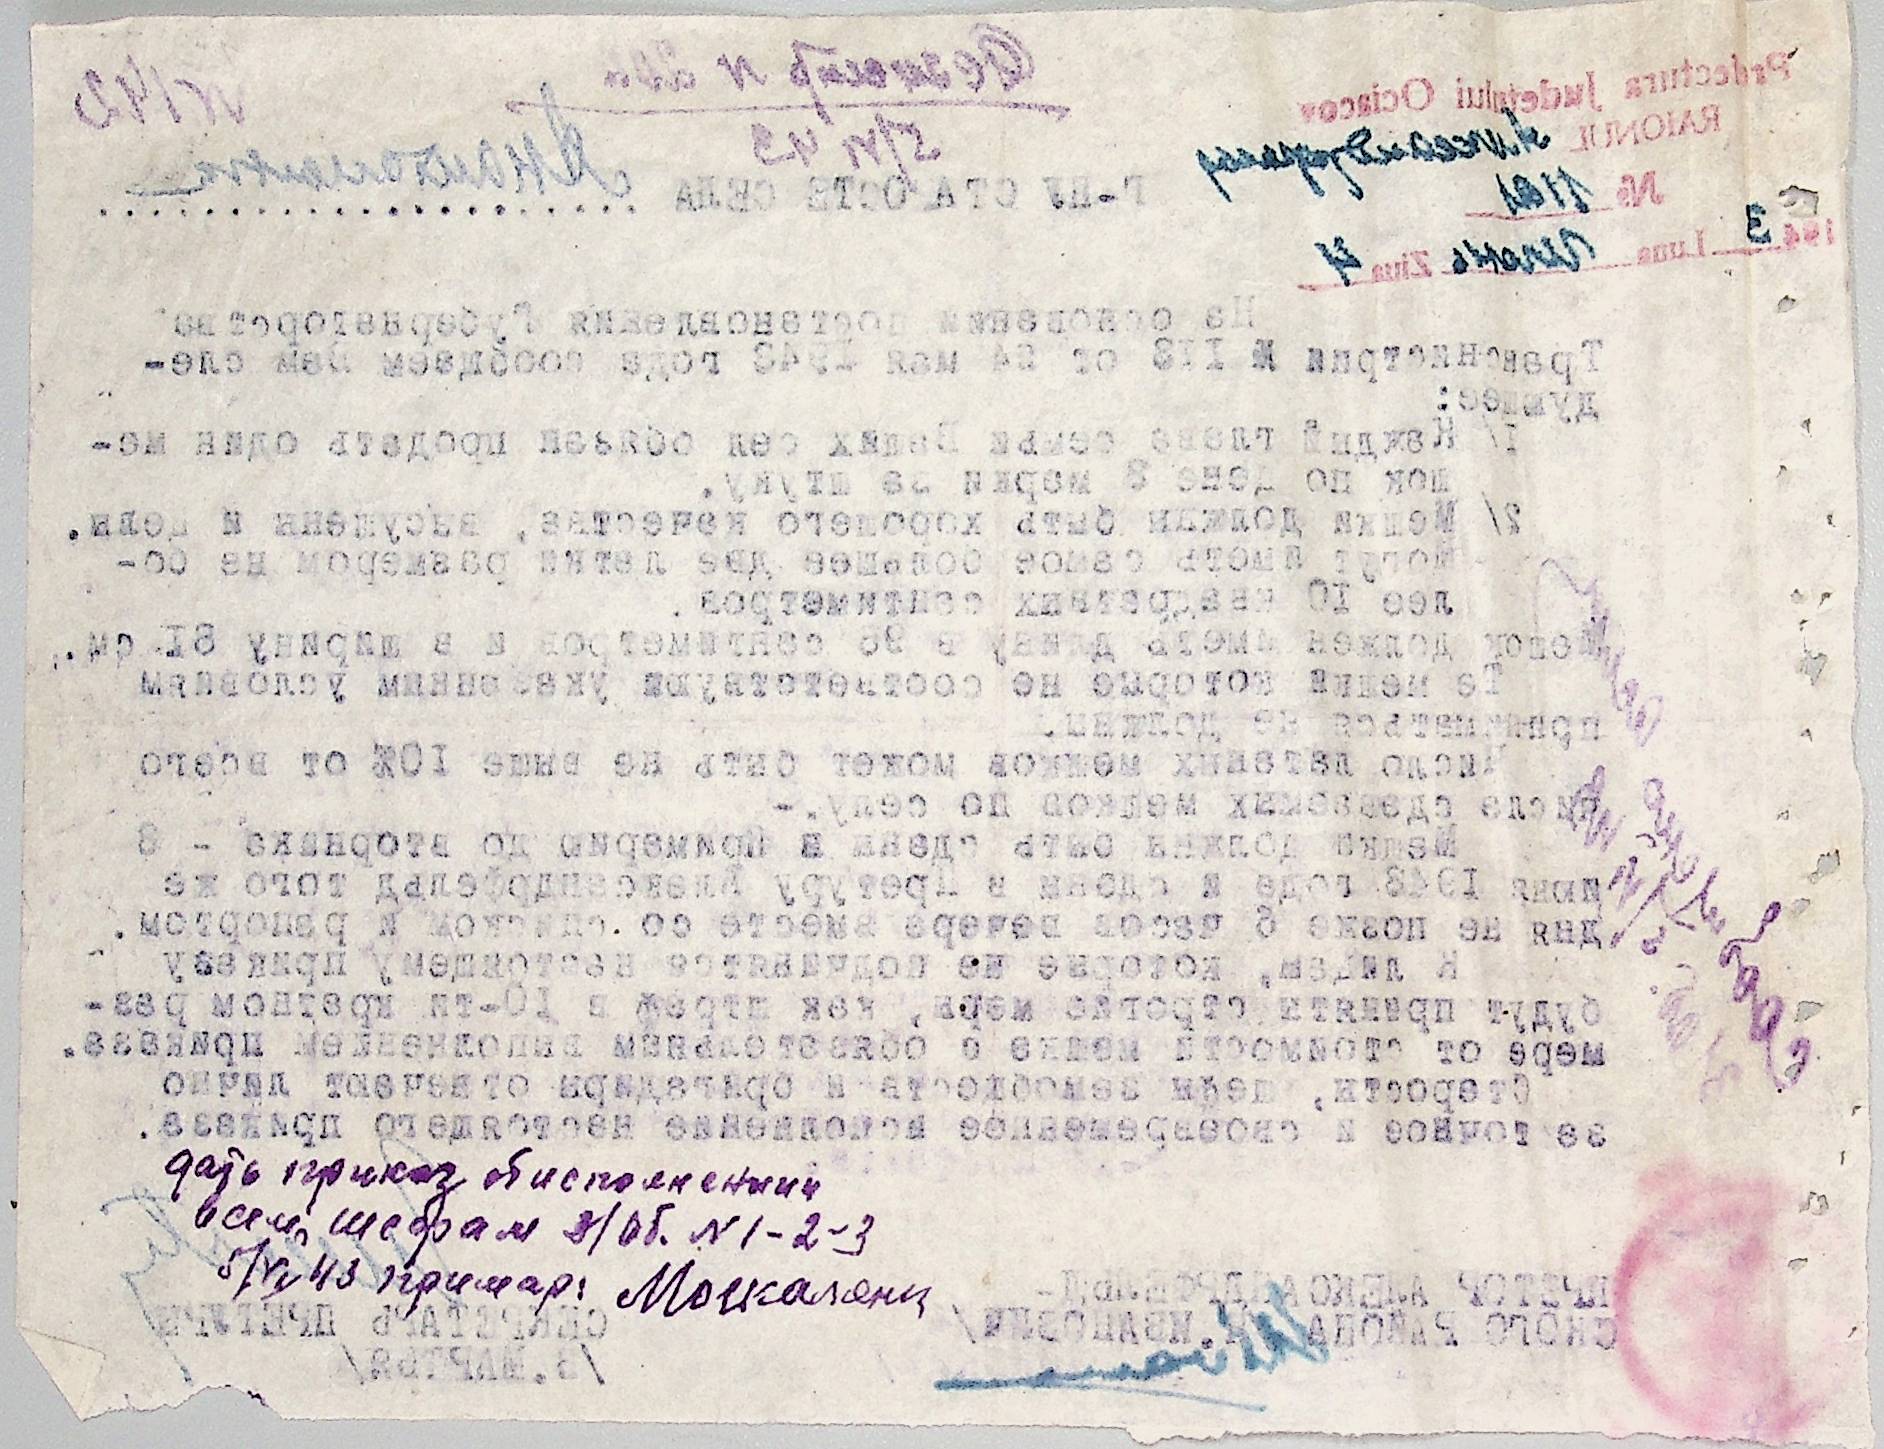 Prefectura Județului Ociacov
RAIONUL
№ 1121
1943 Luna Июнь Ziua 4
N 142
5/VI 43
Г-НУ СТАРОСТЕ СЕЛА
На основании постановления Губернаторства
Транснистрии № 113 от 24 мая 1943 года сообщаем Вам сле-
дующее:
1/ Каждый глава семьи Ваших сел обязан продать один ме-
шок по цене 8 марки за штуку.
2/ Мешки должны быть хорошего качества, высушены и целы.
могут иметь самое большее две латки размером не бо-
лее 10 квадратных сентиметров.
Мешок должен иметь длину в 95 сентиметров и в ширину 61 см.
Те мешки которые не соответствующ указанным условиям
приниматься не должны.
Число латаных мешков может быть не выше 10% от всего
числа сдаваемых мешков по селу.-
Мешки должны быть сданы в Примерию до вторника - 8
июня 1943 года и сданы в Претуру Александрфельд того же
дня не позже 6 часов вечера вместе со списком и рапортом.
К лицам, которые не подчинятся настоящему приказу
будут приняты строгие меры, как штраф в 10-ти кратном раз-
мере от стоимости мешка с обязательным выполнением приказа.
Старосты, шефы землобществ и бригадиры отвечают лично
за точное и своевременное исполнение настоящего приказа.
дать приказ об исполнении
всем шефам з/об. N 1-2-3
5/VI 43 примар: Москаленк
ПРЕТОР АЛЕКСАНДРФЕЛЬД-
СКОГО РАЙОНА /И.ИВАНОВИЧ/
СЕКРЕТАРЬ ПРЕТУРЫ
/В.МАРТЬЯ/